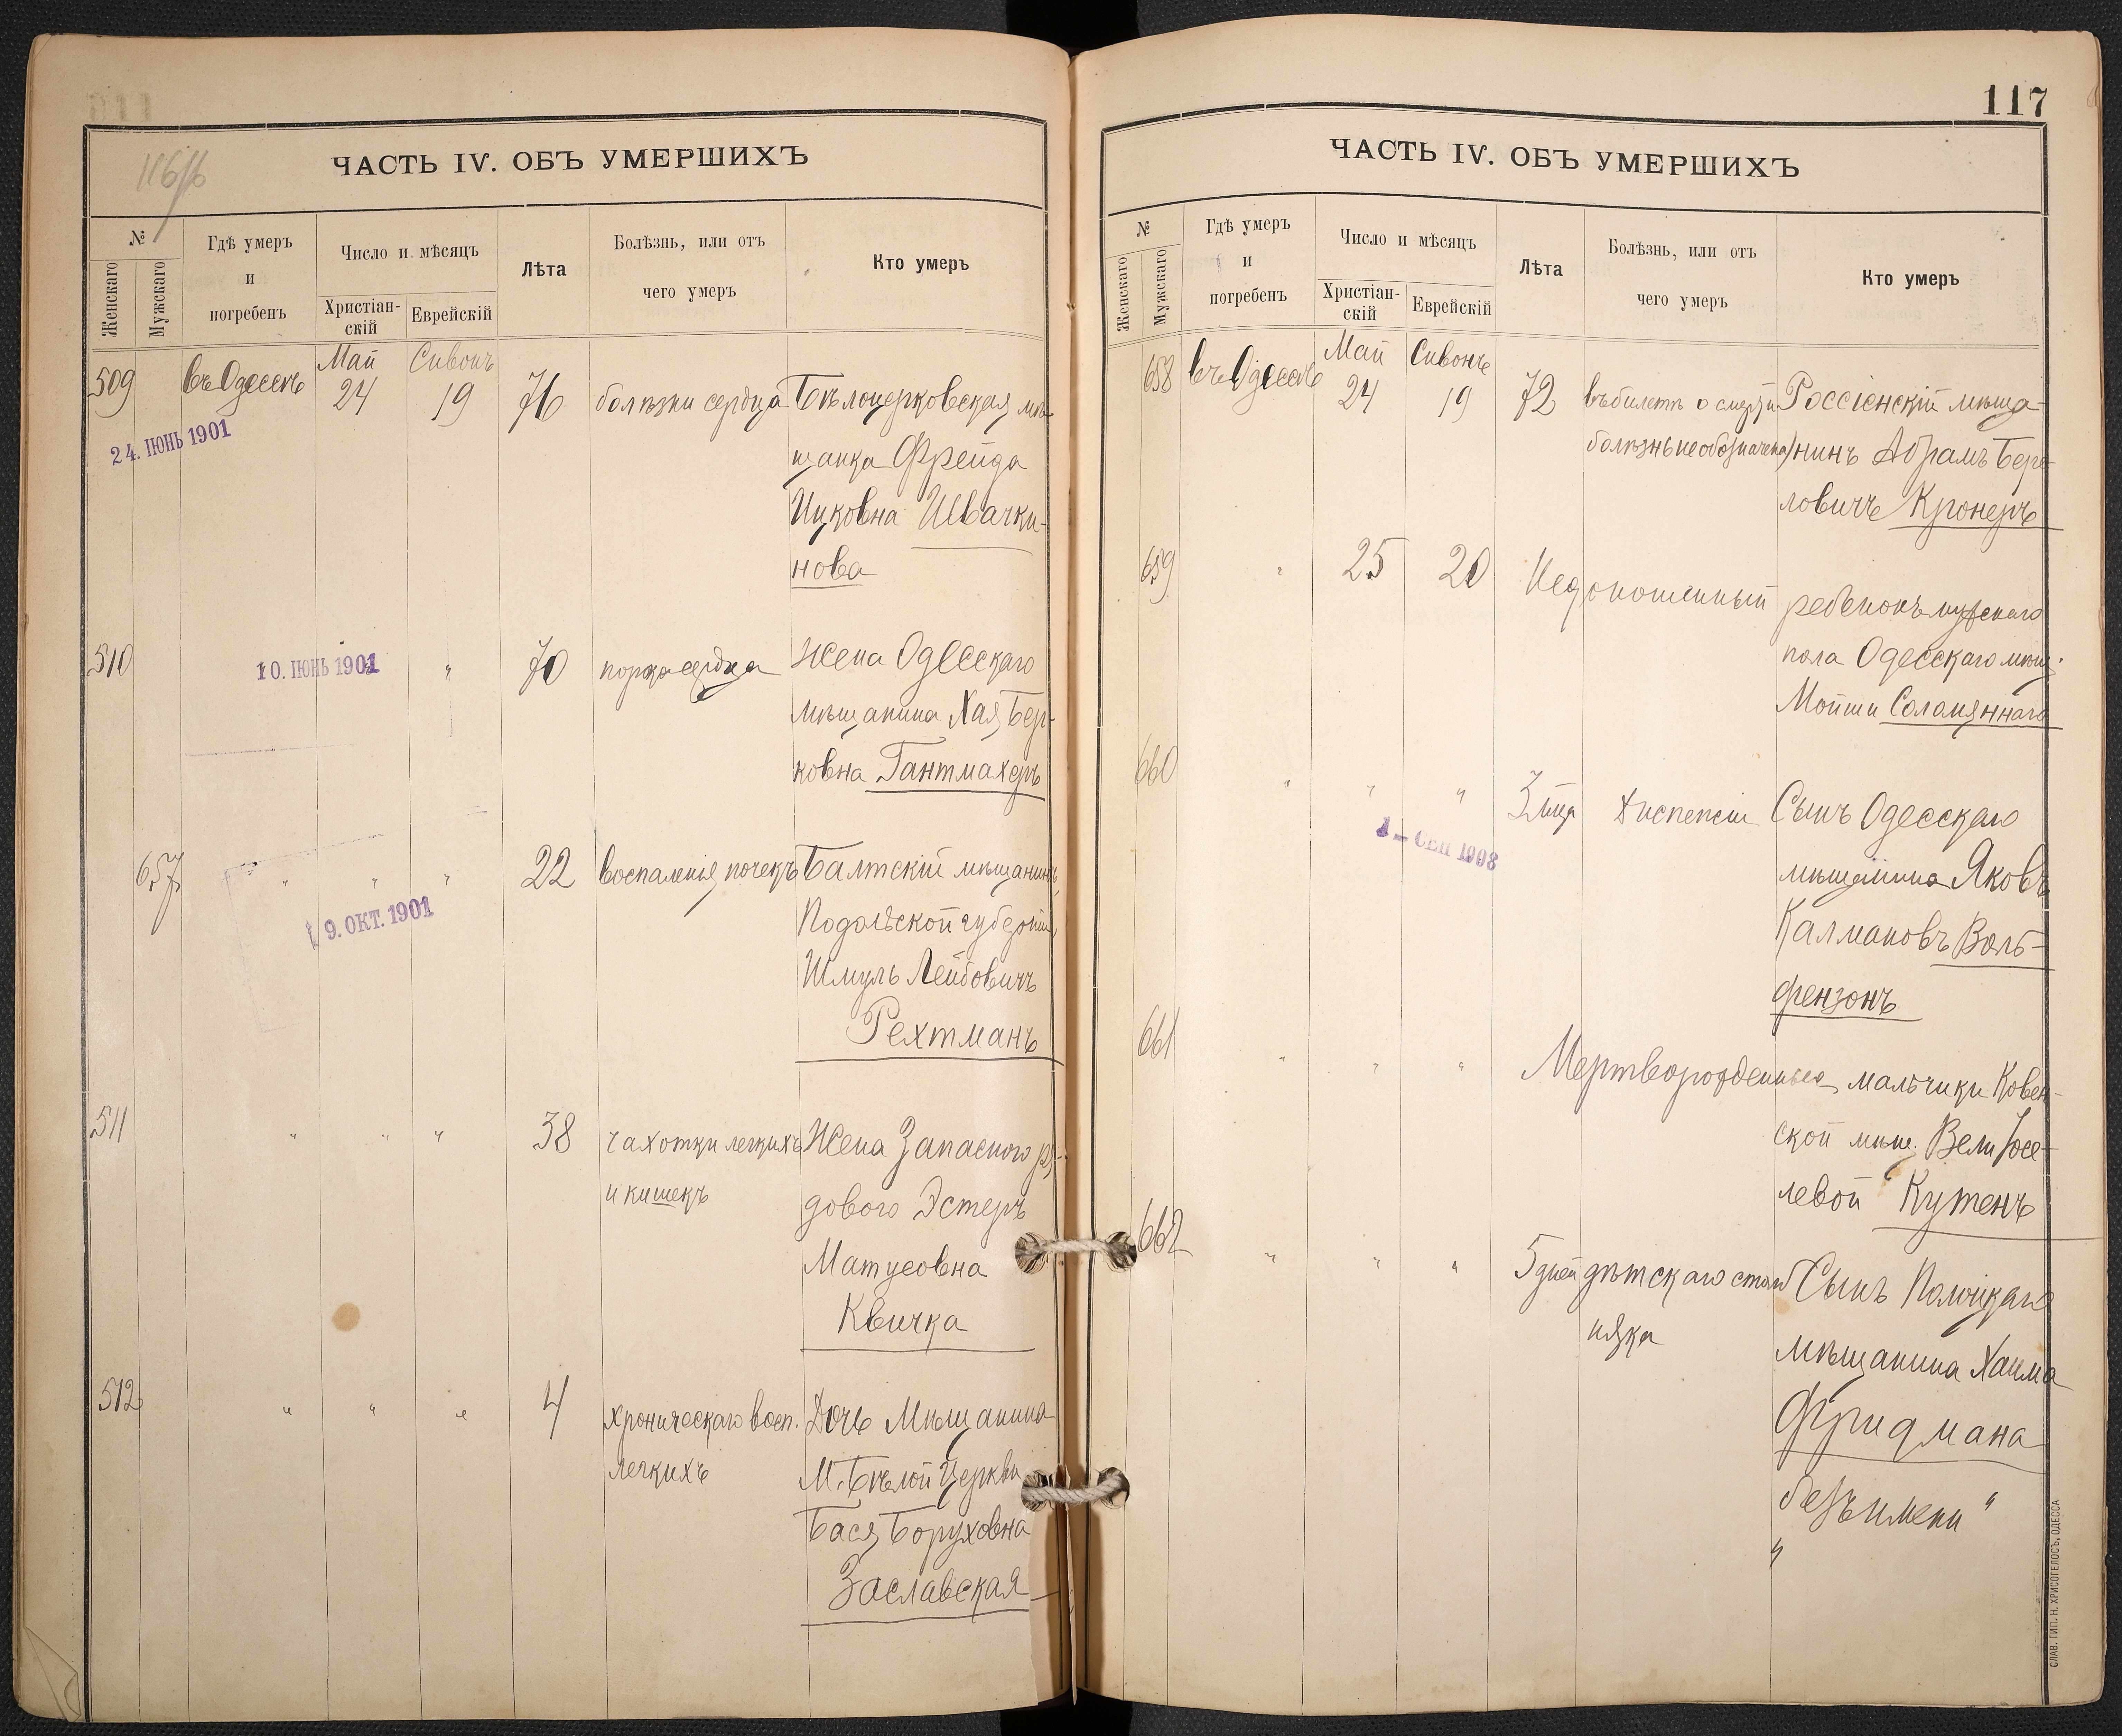 116/b
ЧАСТЬ IV. ОБЪ УМЕРШИХЪ
№
Женскаго
Мужскаго
Гдѣ умеръ
и
погребенъ
Число и мѣсяцъ
Христіан-
скій
Еврейскій
Лѣта
Болѣзнь, или отъ
чего умеръ
Кто умеръ
Май Сивонъ
509 въ Одессѣ 24 19 76 болѣзни сердца Бѣлоцерковская мѣ-
щанка Фрейда
Ицковна Швачки-
нова
24. ІЮНЬ 1901
510 " " 70 порока сердца Жена Одесскаго
мѣщанина Хая Бер-
ковна Гантмахеръ
10. ІЮНЬ 1901
657 " " " 22 воспаленія почекъ Балтскій мѣщанинъ,
Подольской губерніи
Шмуль Лейбовичъ
Рехтманъ
19. ОКТ. 1901
511 " " " 38 чахотки легкихъ Жена Запасного ря-
и кишекъ дового Эстеръ
Матусовна
Квичка
512 " " " 4 хроническаго восп. Дочь Мѣщанина
легкихъ М. Бѣлой Церкви
Бася Боруховна
Заславская
117
ЧАСТЬ IV. ОБЪ УМЕРШИХЪ
№
Женскаго
Мужскаго
Гдѣ умеръ
и
погребенъ
Число и мѣсяцъ
Христіан-
скій
Еврейскій
Лѣта
Болѣзнь, или отъ
чего умеръ
Кто умеръ
Май Сивонъ
658 въ Одессѣ 24 19 72 въ билетѣ о смерти Россіенскій мѣща-
болѣзнь необозначена) нинъ Абрамъ Бер-
ловичъ Кронеръ
659 " 25 20 Недоношенный ребенокъ мужскаго
пола Одесскаго мѣщ.
Мойши Соломяннаго
660 " " " 3 мца диспепсіи Сынъ Одесскаго
мѣщанина Яковъ
Калмановъ Воль-
фензонъ
1 - СЕН 1908
661 " " " Мертворожденные мальчики Ковен-
ской мѣщ. Вели Іосе-
левой Кутенъ
662 " " " 5 дней дѣтскаго столб Сынъ Полоцкаго
няка мѣщанина Хаима
Фридмана
"безъ имени"
СЛАВ. ТИП. Н. ХРИСОГЕЛОСЪ, ОДЕССА